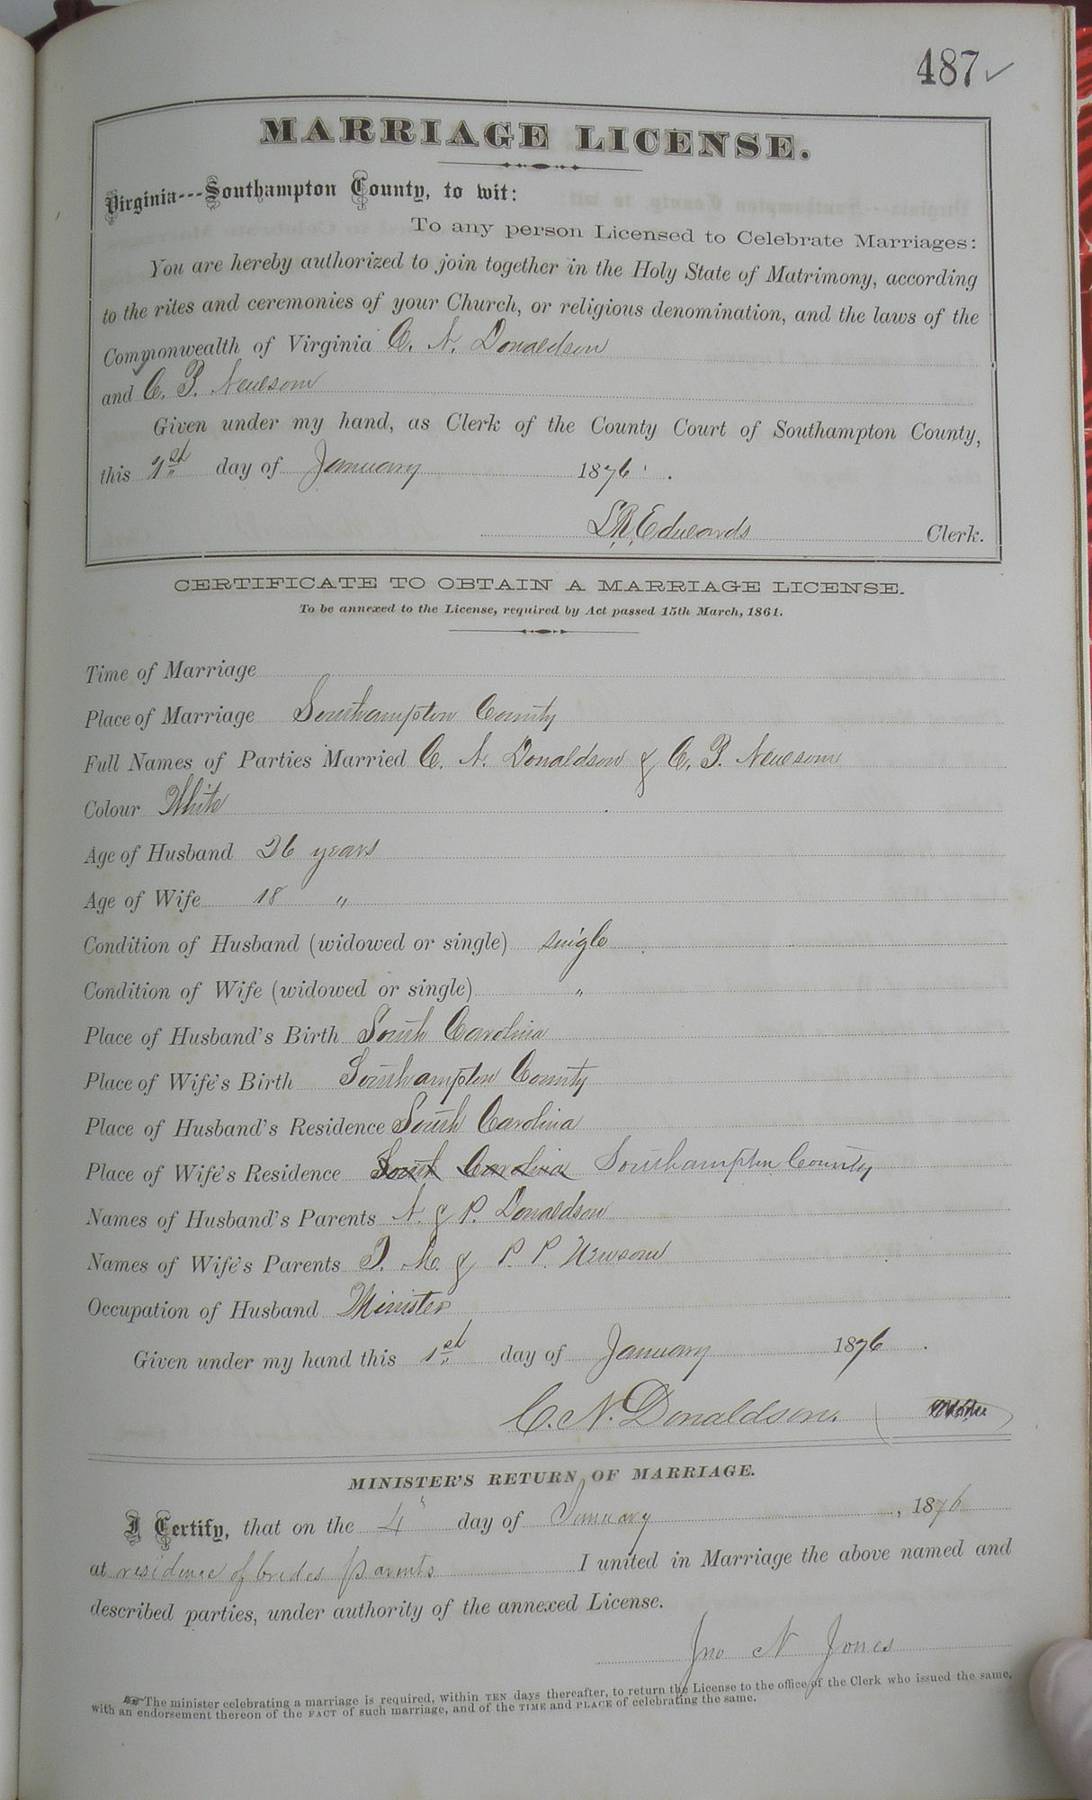 487 ✓
MARRIAGE LICENSE.
Virginia---Southampton County, to wit:
To any person Licensed to Celebrate Marriages:
You are hereby authorized to join together in the Holy State of Matrimony, according
to the rites and ceremonies of your Church, or religious denomination, and the laws of the
Commonwealth of Virginia C. N. Donaldson
and C. P. Newsom
Given under my hand, as Clerk of the County Court of Southampton County,
this 1st day of January 1876.
L. R. Edwards Clerk.
CERTIFICATE TO OBTAIN A MARRIAGE LICENSE.
To be annexed to the License, required by Act passed 15th March, 1861.
Time of Marriage
Place of Marriage Southampton County
Full Names of Parties Married C. N. Donaldson & C. P. Newsom
Colour White
Age of Husband 26 years
Age of Wife 18 "
Condition of Husband (widowed or single) single
Condition of Wife (widowed or single) "
Place of Husband's Birth South Carolina
Place of Wife's Birth Southampton County
Place of Husband's Residence South Carolina
Place of Wife's Residence South Carolina Southampton County
Names of Husband's Parents N. & P. Donaldson
Names of Wife's Parents T. M. & P. P. Newsom
Occupation of Husband Minister
Given under my hand this 1st day of January 1876.
C. N. Donaldson.
MINISTER'S RETURN OF MARRIAGE.
I Certify, that on the 4" day of January, 1876
at residence of brides parents I united in Marriage the above named and
described parties, under authority of the annexed License.
Jno N Jones
The minister celebrating a marriage is required, within TEN days thereafter, to return the License to the office of the Clerk who issued the same,
with an endorsement thereon of the FACT of such marriage, and of the TIME and PLACE of celebrating the same.